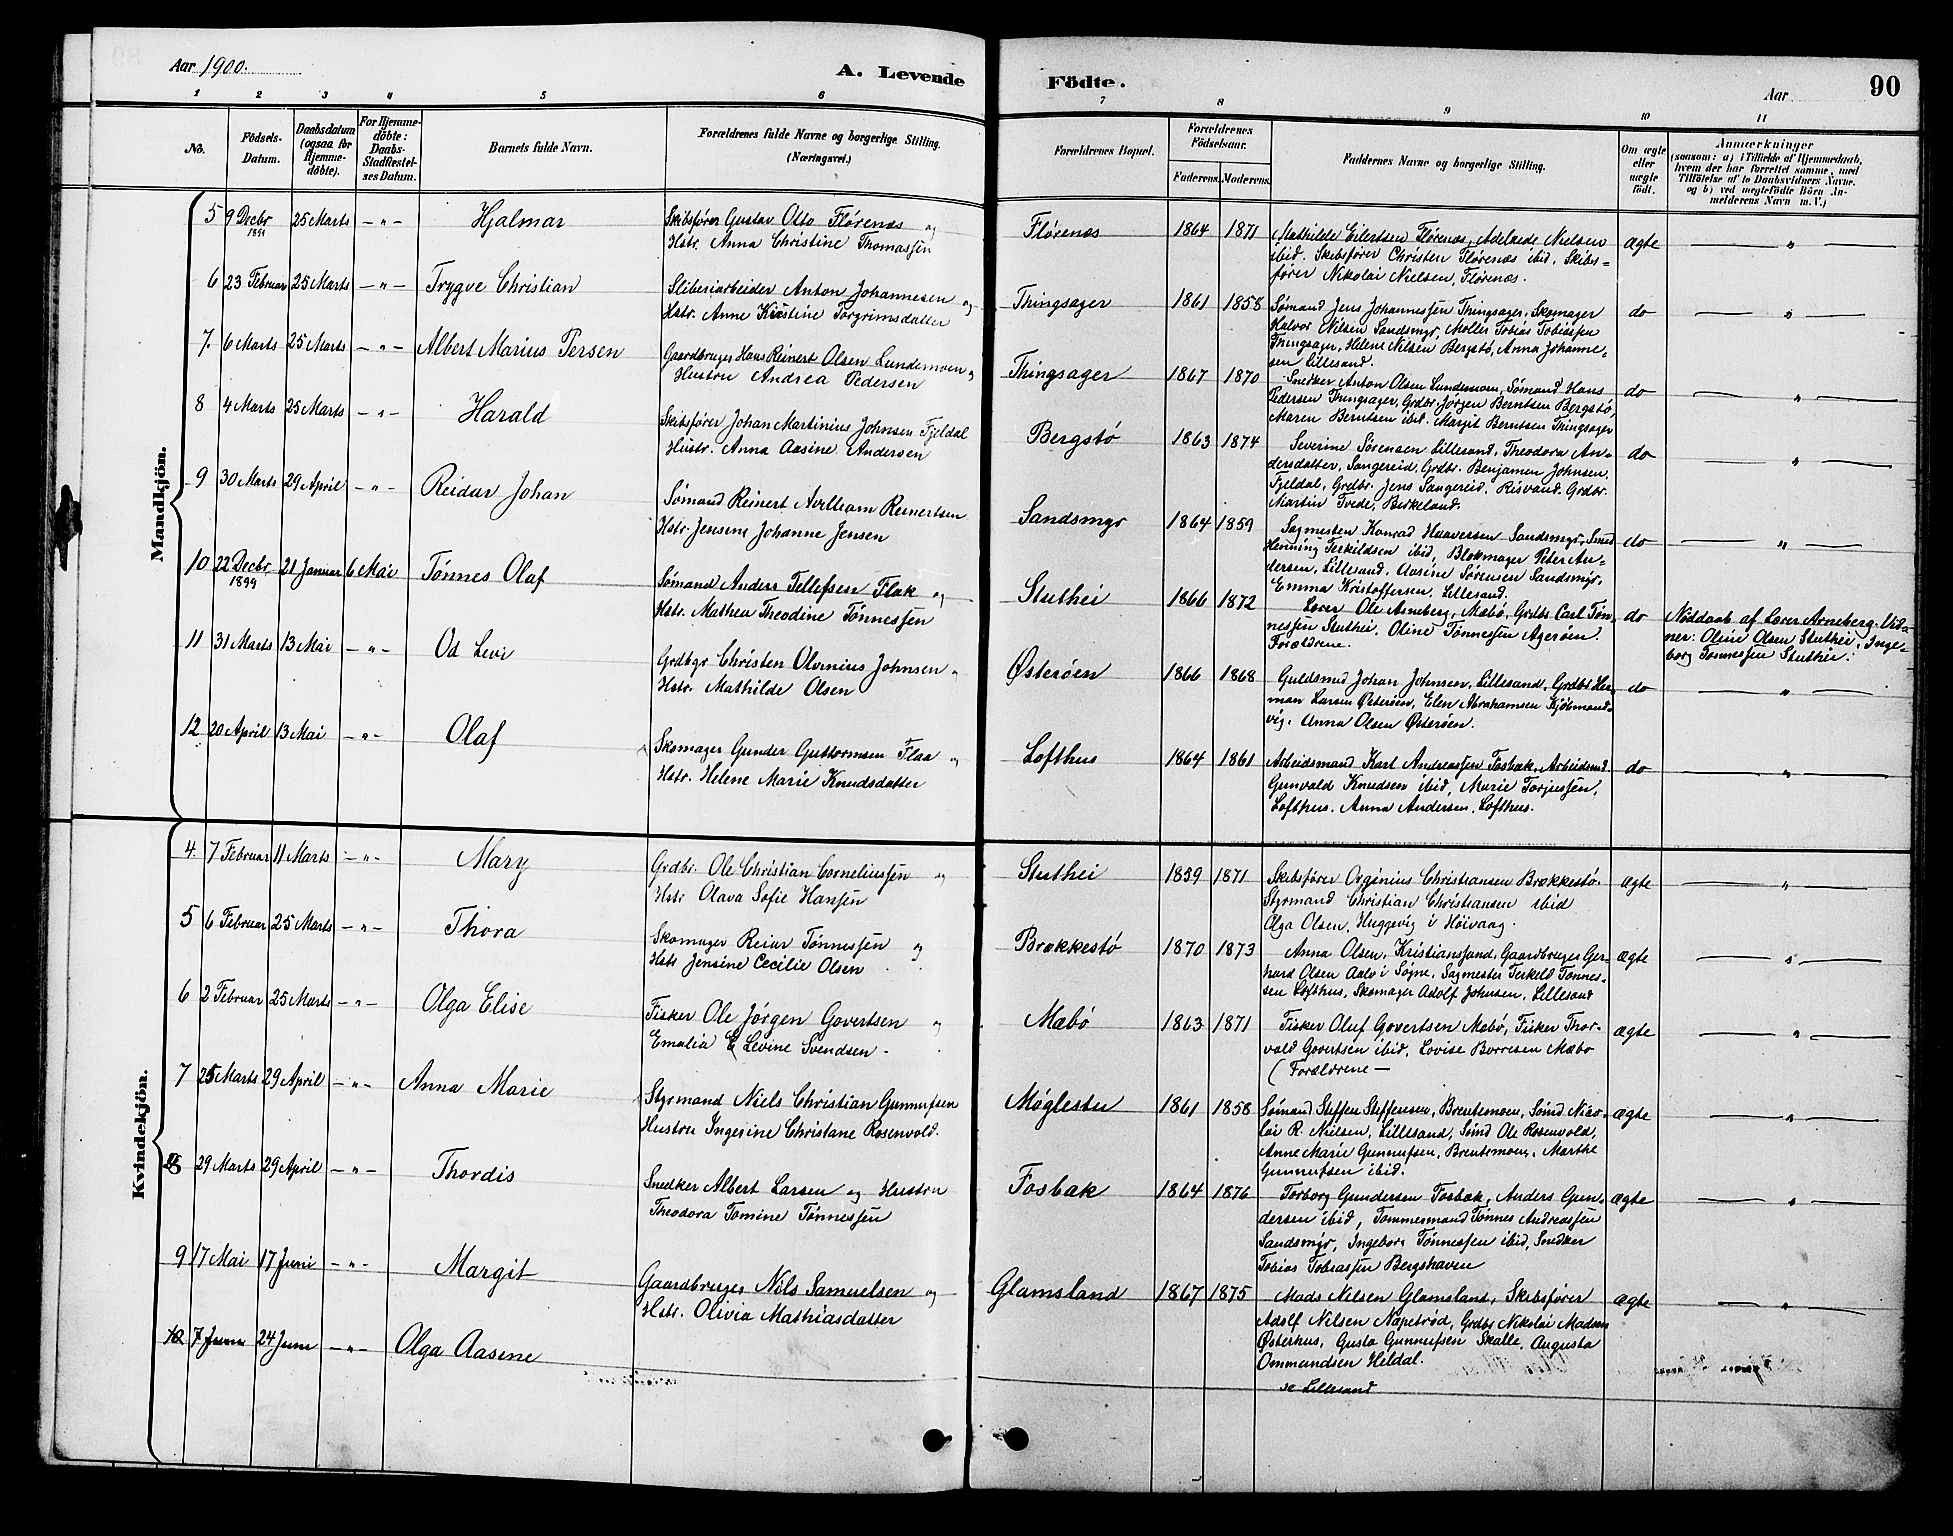 Aar 1900.
A. Levende
Födte.
Aar
90
1 2 3 4 5 6 7 8 9 10 11
No.
Födsels-
Datum.
Daabsdatum
(ogsaa for
Hjemme-
döbte).
For Hjemme-
döbte:
Daabs-
Stadfæstel-
ses Datum.
Barnets fulde Navn.
Forældrenes fulde Navne og borgerlige Stilling.
(Næringsvei.)
Forældrenes Bopæl.
Forældrenes
Födselsaar.
Faderens. Moderens.
Faddernes Navne og borgerlige Stilling.
Om ægte
eller
uægte
födt.
Anmærkninger
(saasom: a) i Tilfælde af Hjemmedaab,
hvem der har forrettet samme, med
Tilföielse af to Daabsvidners Navne,
og b) ved uægtefödte Börn An-
melderens Navn m. V.)
Mandkjön.
5 9 Decbr 1899 25 Marts - " - Hjalmar
Skibsfører Gustav Otto Flørenæs og
Hstr. Anna Christine Thomassen
Flørenæs 1864 1871
Mathilde Eilertsen Flørenæs, Adelaide Nielsen
ibid. Skibsfører Christen Flørenæs ibid, Skibs-
fører Nikolai Nielsen, Flørenæs.
ægte "
6 23 Februar 25 Marts - " - Trygve Christian
Sliberiarbeider Anton Johannesen og
Hstr. Anne Kirstine Torgrimsdatter
Thingsager 1861 1858
Sømand Jens Johannessen Thingsager, Skomager
Halvor Nilsen Sandsmyr, Møller Tobias Tobiassen
Thingsager, Helene Nilsen Bergstø, Anna Johanne-
sen Lillesand.
do "
7. 6 Marts 25 Marts - " - Albert Marius Persen
Gaardbruger Hans Reinert Olsen Lundemoen og
Hustru Andrea Pedersen
Thingsager 1867 1870
Snedker Anton Olsen Lundemoen, Sømand Hans
Pedersen Thingsager, Grdbr. Jørgen Berntsen Bergstø,
Maren Berntsen ibid. Margit Berntsen Thingsager
do "
8 4 Marts 25 Marts - " - Harald
Skibsfører Johan Martinius Johnsen Fjeldal
Hustr. Anna Aasine Andersen
Bergstø 1863 1874
Severine Sørensen Lillesand, Theodora An-
dersdatter, Sangereid, Grdbr. Benjamen Johnsen,
Fjeldal, Grdbr. Jens Sangereid, Risvand. Grdbr.
Martin Tvede, Birkeland.
do "
9 30 Marts 29 April - " - Reidar Johan
Sømand Reinert Reinertsen
Hstr. Jensine Johanne Jensen
Sandsmyr 1864 1859
Sagmesten Konrad Haaversen Sandsmyr, Smed
Henning Terkildsen ibid, Blokmager Peter An-
dersen, Lillesand, Aasine Sørensen Sandsmyr,
Emma Kristoffersen, Lillesand.
do "
10 22 Decbr 1899 21 Januar 6 Mai Tønnes Olaf
Sømand Anders Tellefsen Flak og
Hstr. Mathea Theodine Tønnessen
Stuthei 1866 1872
Lærer Ole Arneberg, Mæbø, Grdbr Carl Tøn-
nessen Stuthei, Oline Tønnessen Agerøen.
Forældrene.
do
Nøddaab af Lærer Arneberg. Vid-
ner: Oline Olsen Stuthei, Inge-
borg Tønnessen Stuthei.
11 31 Marts 13 Mai - " - Od Levi
Grdbgr Christen Olvinius Johnsen "
Hstr. Mathilde Olsen
Østerøen 1866 1868
Guldsmed Johan Johnsen, Lillesand, Grdbr Her-
man Larsen Østerøen, Elen Abrahamsen Kjøbmand-
vig. Anna Olsen Østerøen.
do "
12 20 April 13 Mai - " - Olaf
Skomager Gunder Guttormsen Flaa og
Hstr. Helene Marie Knudsdatter
Lofthus 1864 1861
Arbeidsmand Karl Andreassen Fosbæk, Arbeidsmd.
Gunvald Knudsen ibid, Marie Torjussen,
Lofthus. Anna Andersen, Lofthus.
do "
Kvindekjön.
4. 7 Februar 11 Marts - " - Mary
Grdbr. Ole Christian Corneliussen og
Hstr Olava Sofie Hansen
Stuthei 1859 1871
Skibsfører Orginius Christiansen Brækkestø.
Styrmand Christian Christiansen ibid
Olga Olsen, Huggevig i Høivaag.
ægte "
5 6 Februar 25 Marts - " - Thora
Skomager Reiar Tønnessen og
Hstr Jensine Cecilie Olsen
Brækkestø 1870 1873
Anna Olsen, Kristianssand, Gaardbruger Ger-
hard Olsen Aalo i Søgne, Sagmester Terkeld Tønnes-
sen Lofthus, Skomager Adolf Johnsen, Lillesand
ægte "
6 2 Februar 25 Marts - " - Olga Elise
Fisker Ole Jørgen Govertsen og
Emalia E Levine Svendsen
Mæbø 1863 1871
Fisker Oluf Govertsen Mæbø, Fisker Thor-
vald Govertsen ibid, Lovise Borresen Mæbø
(Forældrene -
ægte "
7 25 Marts 29 April - " - Anna Marie
Styrmand Niels Christian Gunnufsen
Hustru Ingerine Christane Rosenvold.
Møglestu 1861 1858
Sømand Steffen Steffensen, Brentemoen, Sømd Nico-
lai R. Nielsen, Lillesand, Sømd Ole Rosenvold,
Anne Marie Gunnufsen, Brentemoen, Marthe
Gunnufsen ibid.
ægte "
8 29 Marts 29 April - " - Thordis
Snedker Albert Larsen og Hustru
Theodora Tomine Tønnessen
Fosbæk 1864 1876
Torborg Gundersen Fosbæk, Anders Gun-
dersen ibid, Tømmermand Tønnes Andreassen
Sandsmyr, Ingeborg Tønnessen ibid, Snedker
Tobias Tobiassen Bergshaven
ægte "
9 17 Mai 17 Juni - " - Margit
Gaardbruger Nils Samuelsen og
Hstr. Olivia Mathiasdatter
Glamsland 1867 1875
Mads Nilsen Glamsland, Skibsfører
Adolf Nilsen Napetrød, Grdbr Nikolai Madsen
Østerhus, Gusta Gunnufsen Skalle, Augusta
Ommundsen Heldal.
ægte "
10 7 Juni 24 Juni - " - Olga Aasene
se Lillesand